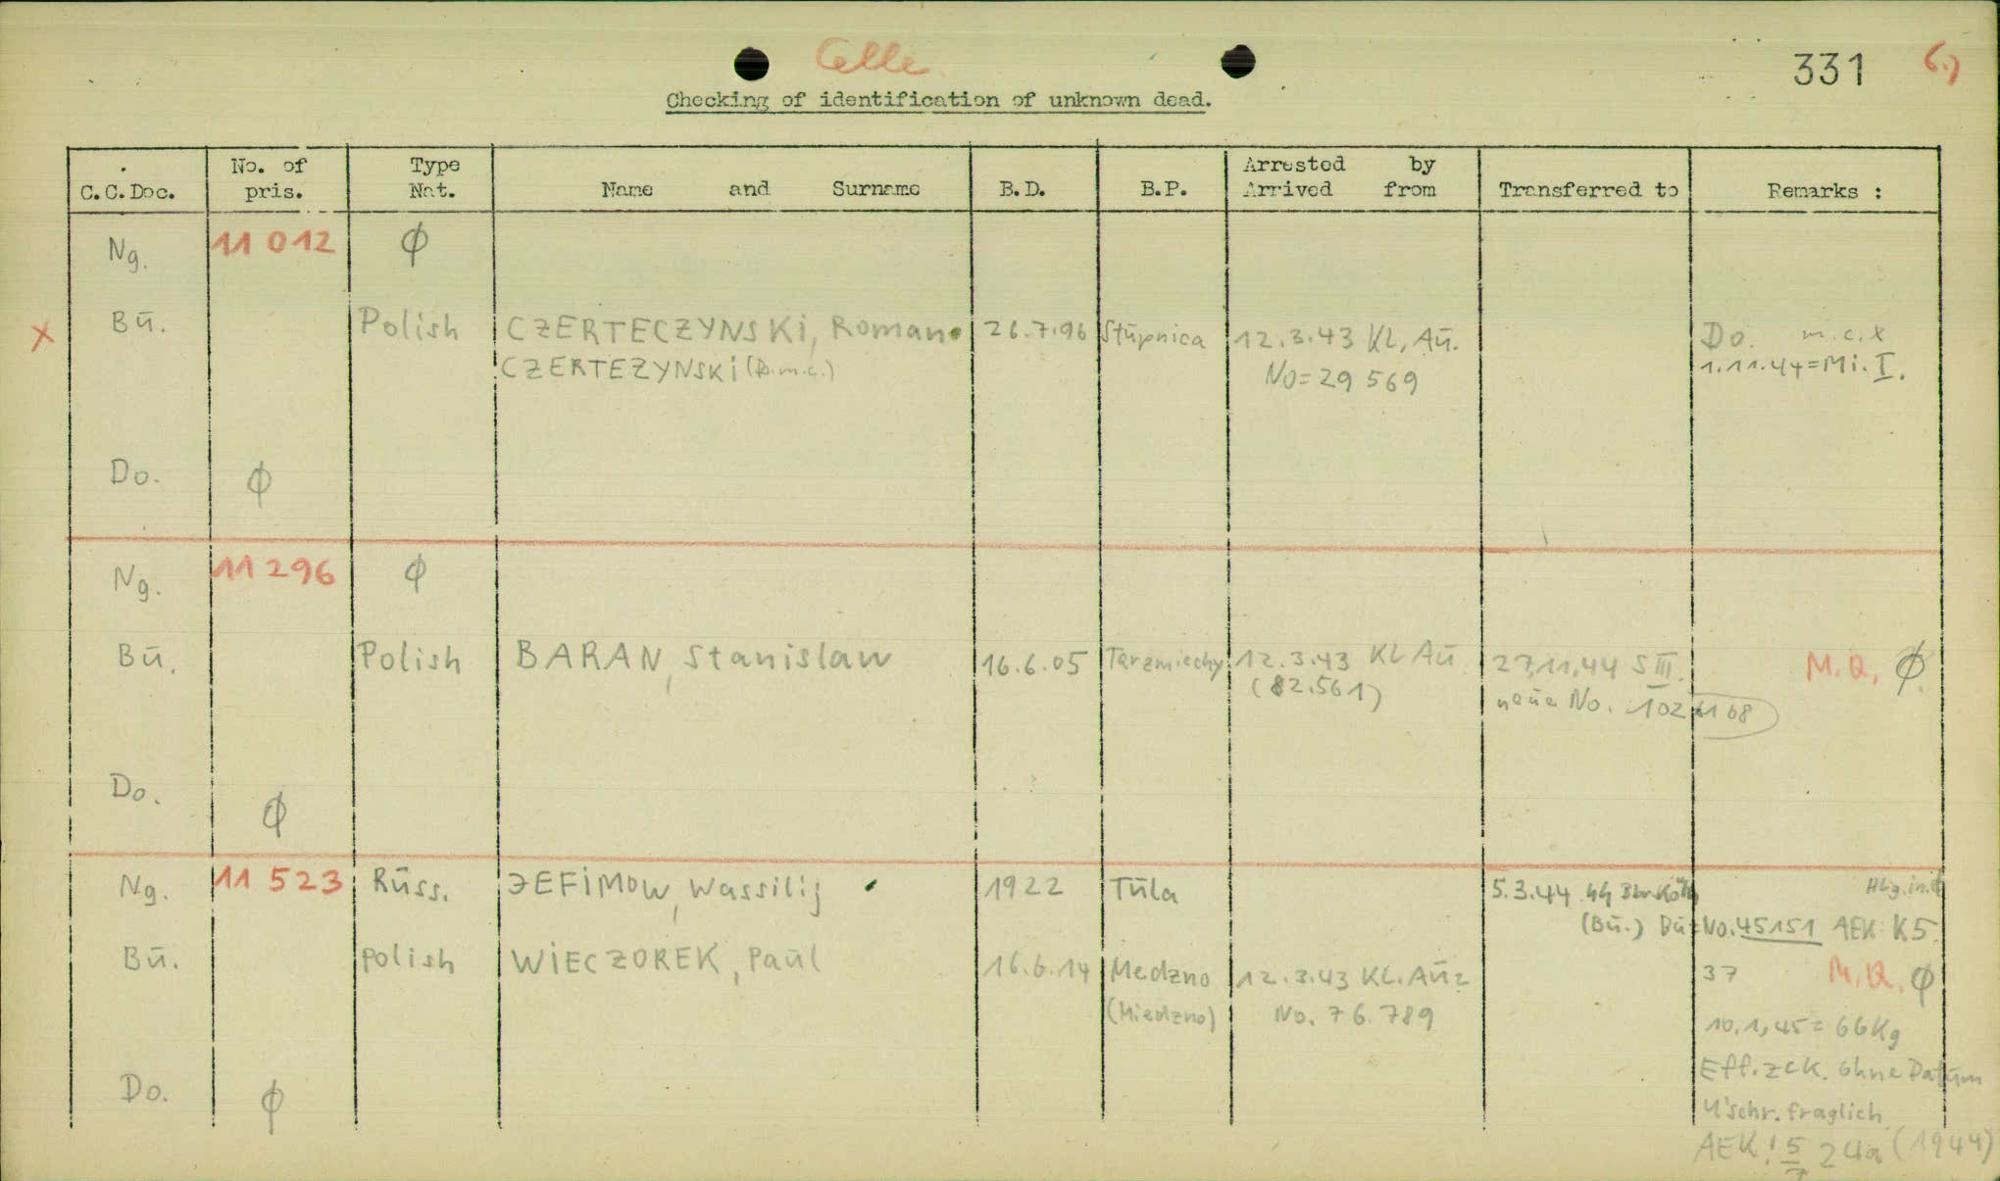 Celle
331 6.)
Checking of identification of unknown dead.
C.C.Doc. No. of pris. Type Nat. Name and Surname B.D. B.P. Arrested by Arrived from Transferred to Remarks :
Ng. 11 012 ϕ
x Bū. Polish CZERTECZYNSKi, Roman 26.7.96 Stūpnica 12.3.43 KL. Aū. Do. m.c.x
CZERTEZYNSKi (D.m.c.) No=29 569 1.11.44=Mi. I.
Do. ϕ
Ng. 11 296 ϕ
Bū. Polish BARAN, Stanislaw 16.6.05 Tarzmiechy 12.3.43 KL Aū 27.11.44 S III. M.Q. ϕ
(82.561) neue No. 102 108
Do. ϕ
Ng. 11 523 Rūss. JEFiMOW, Wassilij 1922 Tūla 5.3.44
(Bū.) No. 45151 AEK K5
Bū. polish WiECZOREK, Paūl 16.6.14 Medzno 12.3.43 KL. Aū= 37 M.Q. ϕ
(Miedzno) No. 76.789 10.1.45 = 66Kg
Eff.zck. ohne Datūm
U'schr. fraglich
Do. ϕ
AEK! 5 24a (1944)